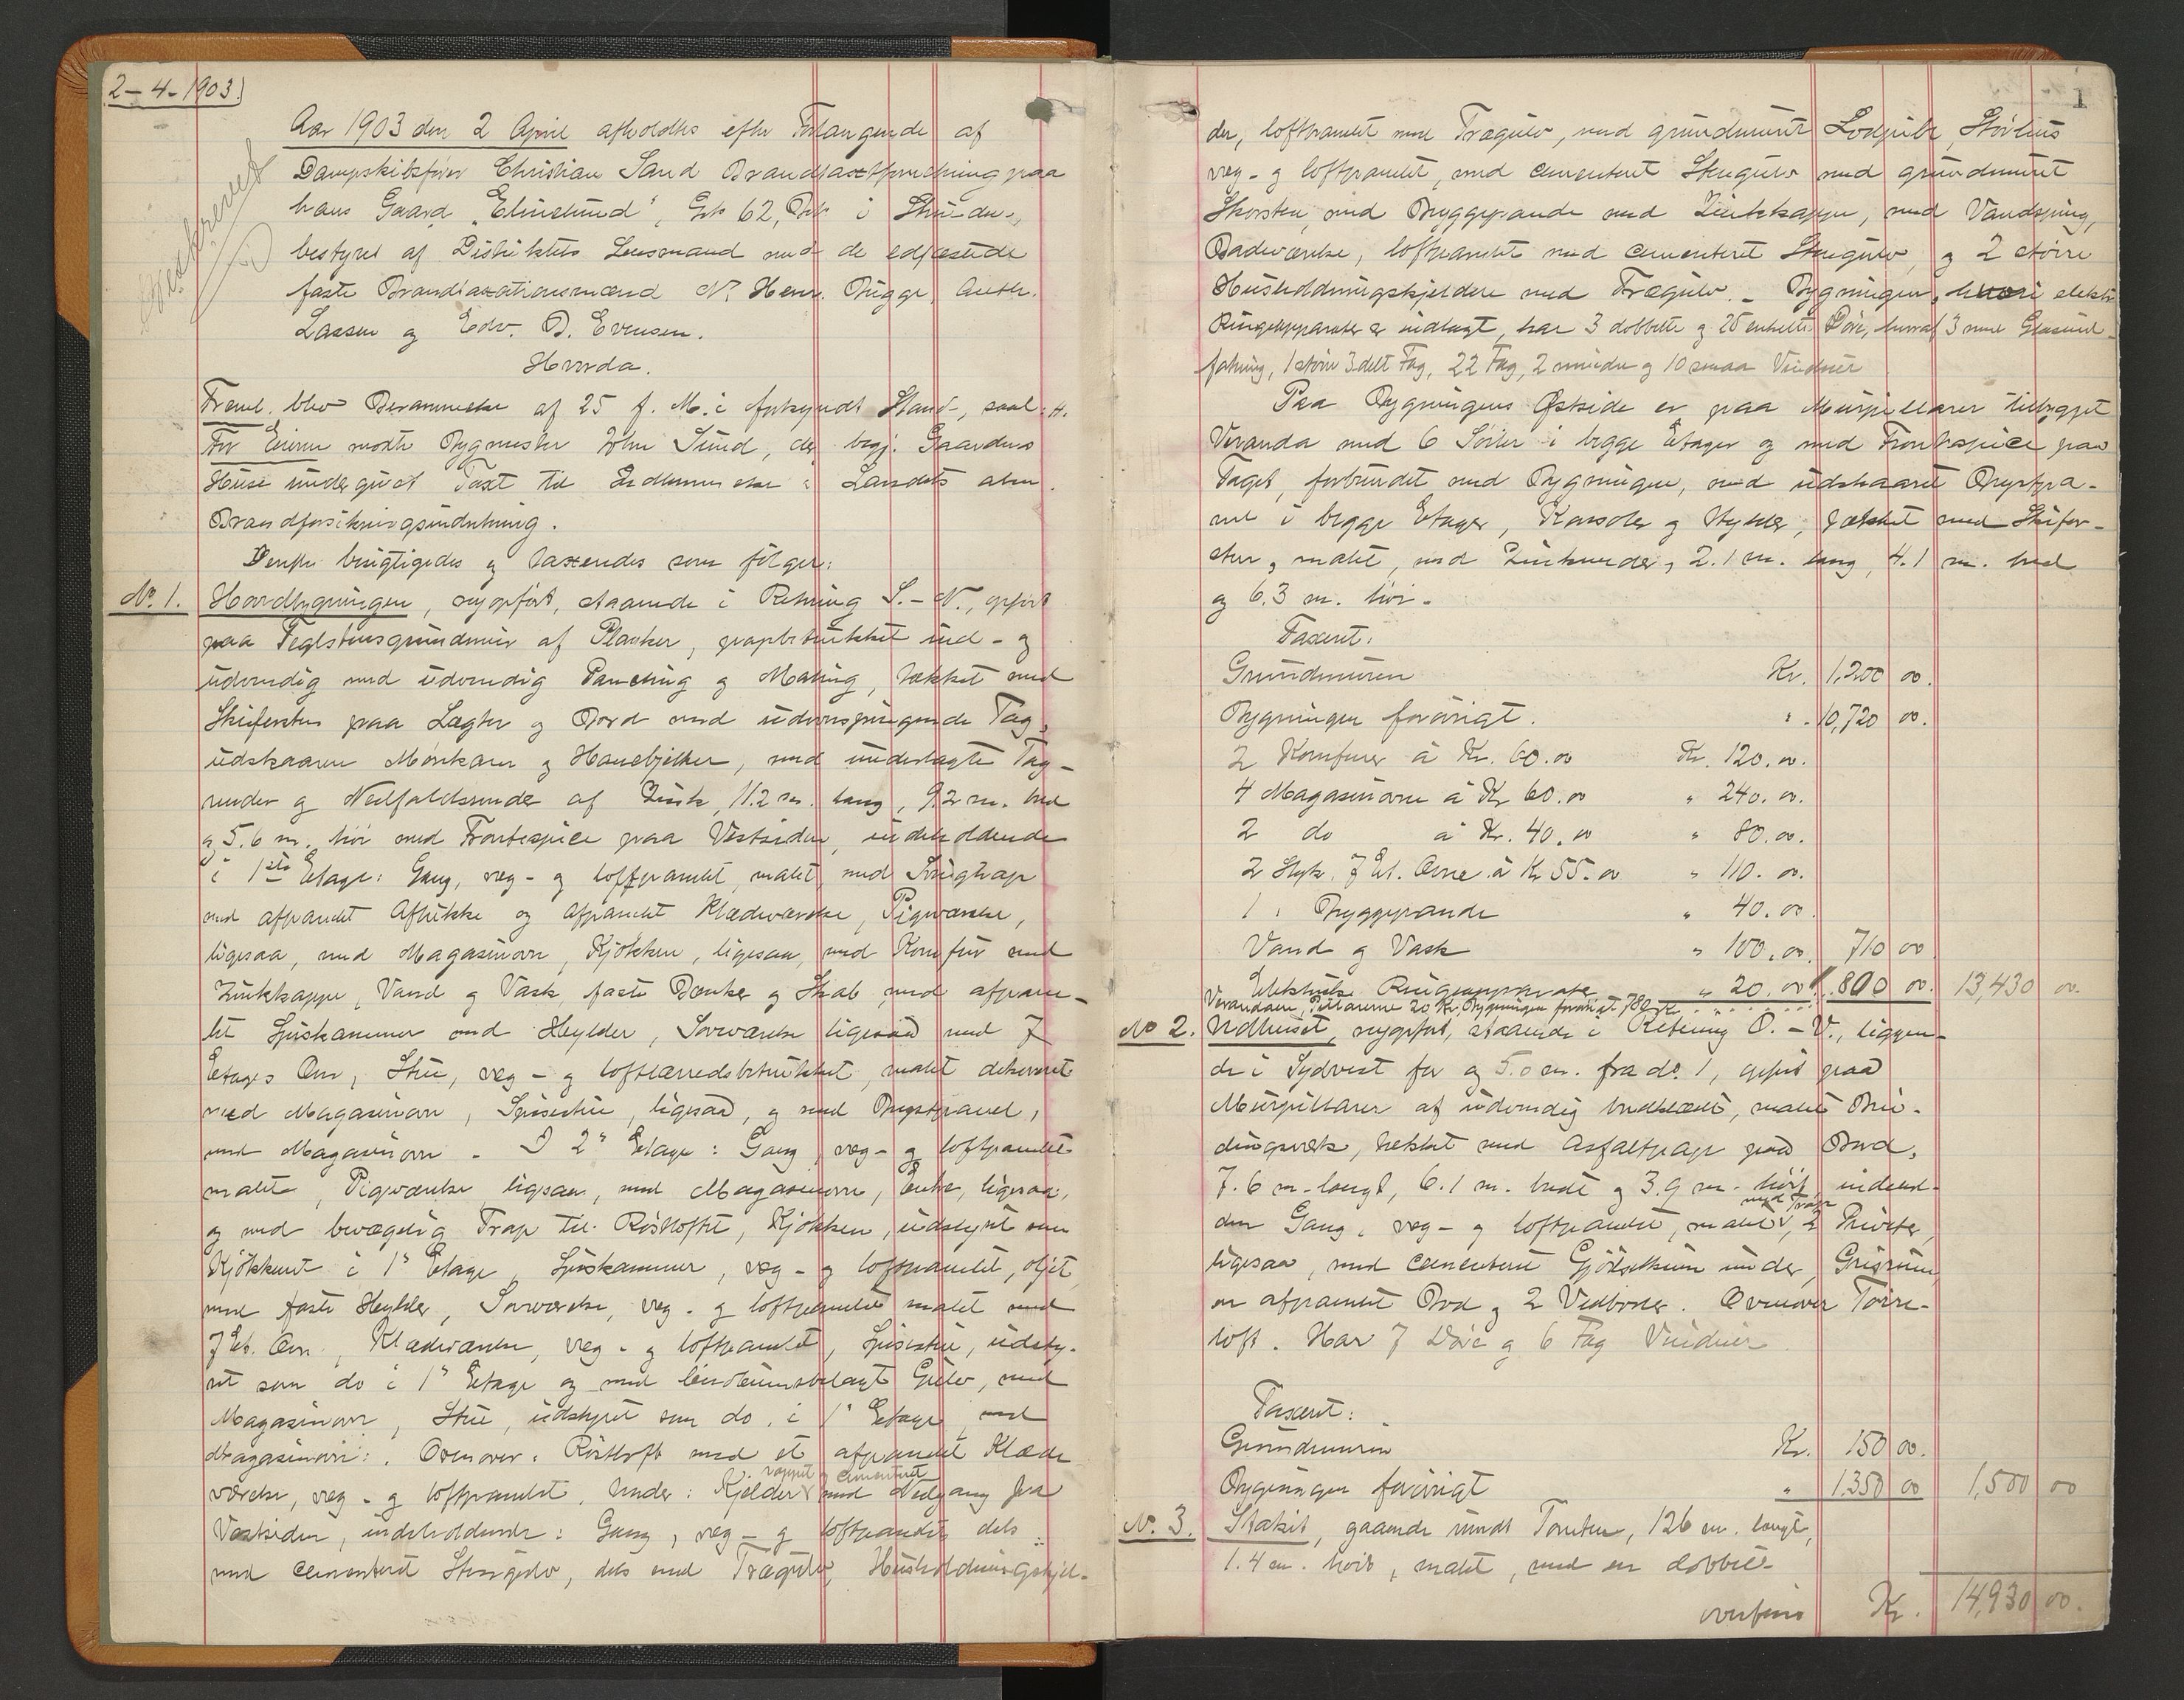 2-4-1903
Aar 1903 den 2 April afholdtes efter Forlangende af
Dampskibsfører Christian Sand Brandtaxtforretning paa
hans Gaard "Elvestrand", G.No 62, i
bestyret af Distriktets Lensmand med de edfæstede
faste Brandtaxationsmænd N. Henr. Bugge, Anth.
Lassen og Edv. B. Evensen.
Hvorda.
Freml. blev Berammelse af 25 f. M. i forkyndt Stand, saal. H.
For Eieren mødte Bygmester John Sund, der begj. Gaardens
Huse undergivet Taxt til Indlemmelse i Landets alm.
Brandforsikringsindretning.
Derefter besigtigedes og taxeredes som følger:
No. 1. Hovedbygningen, nyopført, staaende i Retning S.-N., opført
paa Teglstensgrundmur af Planker, papbetrukket ind- og
udvendig med udvendig Paneling og Maling, tækket med
Skifersten paa Lægter og Bord med udoverspringende Tag,
udskaarne Mønekam og Hanebjelker, med underlagte Tag-
render og Nedfaldsrender af Zink, 11.2 m. lang, 9.2 m. bred
og 5.6 m. høi med Frontespice paa Vestsiden, indeholdende
i 1ste Etage: Gang, væg- og loftpanelet, malet, med Svingtrap
med afpanelet Aftrikke og afpanelet Klædeværelse, Pigeværelse,
ligesaa, med Magasinovn, Kjøkken, ligesaa, med Komfur med
Zinkkappe, Vand og Vask, faste Bænker og Skab, med afpane-
let Spiskammer med Hylder, Soveværelse ligesaa med 7
Etages Ovn, Stue, væg- og loftlærredsbetrukket, malet dekoreret
med Magasinovn, Spisestue, ligesaa, og med Brystpanel,
med Magasinovn. - I 2" Etage: Gang, væg- og loftpanelet
malet, Pigeværelse ligesaa, med Magasinovn, Entre, ligesaa,
og med bevægelig Trap til Røstloftet, Kjøkken, udstyret som
Kjøkkenet i 1" Etage, Spiskammer, væg- og loftpanelet, oljet
med faste Hylder, Soveværelse, væg- og loftpanelet malet med
7 Et. Ovn, Klædeværelse, væg- og loftpanelet, Spisestue, udsty-
ret som do i 1" Etage og med linoleumsbelagt Gulv, med
Magasinovn, Stue, udstyret som do. i 1" Etage, med
Magasinovn. Ovenover: Røstloft med et afpanelet Klæde
værelse, væg- og loftpanelet. Under: Kjelder rappet og cementeret med Nedgang fra
Vestsiden, indeholdende: Gang, væg- og loftpanelet dels
med cementeret Stengulv, dels med Trægulv, Husholdningskjel-
1
der, loftpanelet med Trægulv, med grundmuret
væg- og loftpanelet, med cementeret Stengulv med grundmuret
Skorsten, med Bryggepande med Zinkkappe, med Vandspring,
Badeværelse, loftpanelet med cementeret Stengulv, og 2 større
Husholdningskjeldere med Trægulv. - Bygningen, hvori elektr
Ringeapparater er indlagt, har 3 dobbelte og 25 enkelte Døre, hvoraf 3 med Glasind-
fatning, 1 større 3delt Fag, 22 Fag, 2 mindre og 10 smaa Vinduer
Paa Bygningens Østside er paa Murpillarer tilbygget
Veranda med 6 Søiler i begge Etager og med Frontespice paa
Taget, forbundet med Bygningen, med udskaaret Brystpa-
nel i begge Etager, Konsoler og Hylder, tækket med Skifer-
sten, malet, med Zinkrender, 2.1 m. lang, 4.1 m. bred
og 6.3 m. høi. -
Taxeret:
Grundmuren Kr. 1,200 00.
Bygningen forøvrigt. " 10,720 00.
2 Komfurer à Kr. 60.00 Kr. 120.00.
4 Magasinovne à Kr 60.00 " 240.00.
2 do à Kr. 40.00 " 80.00.
2 Stykr. 7 Et. Ovne à Kr 55.00 " 110.00.
1 " Bryggepande " 40.00.
Vand og Vask " 100.00. 710 00
Elektriske Ringeapparater " 20.00 800 00. 13,430 00
Verandaen, Pillarerne 20 Kr, Bygningen forøvrigt 780 Kr.
No 2. Udhuset, nyopført, staaende i Retning Ø.-V., liggen-
de i Sydvest for og 5.0 m. fra No. 1, opført paa
Murpillarer af udvendig bordklædt, malet Bin-
dingsverk, tækket med Asfaltpap paa Bord,
7.6 m. langt, 6.1 m. bredt og 3.9 m. høit, indehol-
den Gang, væg- og loftpanelet, malet med Trap, 2 Priveter,
ligesaa, med cementeret Gjødselrum under, Grisrum,
en afpanelet Bod og 2 Vedboder. Ovenover Tørre-
loft. Har 7 Døre og 6 Fag Vinduer
Taxeret:
Grundmuren Kr. 150 00.
Bygningen forøvrigt " 1,350 00 1,500 00
No. 3. Stakit, gaaende rundt Tomten, 126 m. langt,
1.4 m. høit, malet, med en dobbelt-
overføres Kr. 14,930 00.